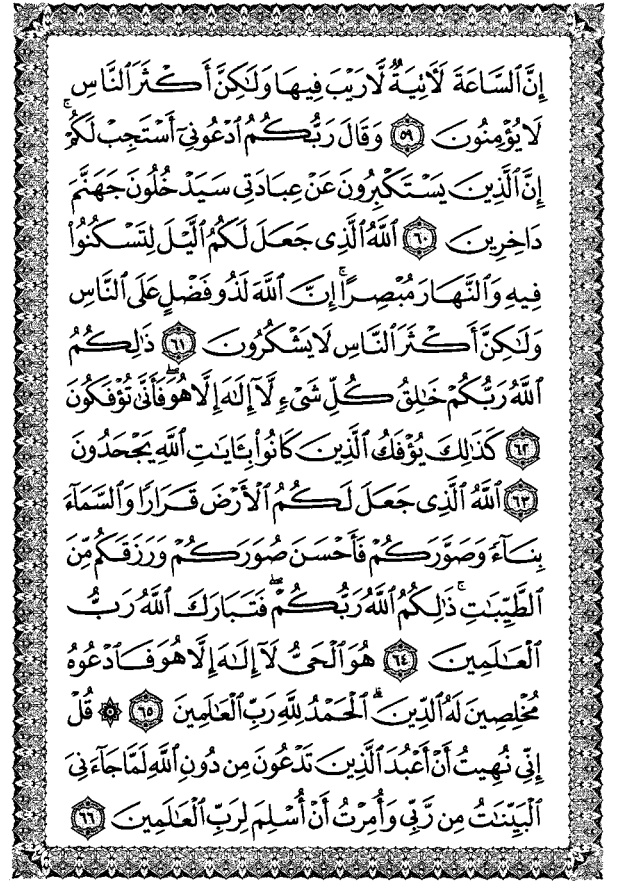 إِنَّ ٱلسَّاعَةَ لَءَاتِيَةٌ لَّا رَيْبَ فِيهَا وَلَٰكِنَّ أَكْثَرَ ٱلنَّاسِ
لَا يُؤْمِنُونَ ۝٥٩ وَقَالَ رَبُّكُمُ ٱدْعُونِىٓ أَسْتَجِبْ لَكُمْ ۚ
إِنَّ ٱلَّذِينَ يَسْتَكْبِرُونَ عَنْ عِبَادَتِى سَيَدْخُلُونَ جَهَنَّمَ
دَاخِرِينَ ۝٦٠ ٱللَّهُ ٱلَّذِى جَعَلَ لَكُمُ ٱلَّيْلَ لِتَسْكُنُوا۟
فِيهِ وَٱلنَّهَارَ مُبْصِرًا ۚ إِنَّ ٱللَّهَ لَذُو فَضْلٍ عَلَى ٱلنَّاسِ
وَلَٰكِنَّ أَكْثَرَ ٱلنَّاسِ لَا يَشْكُرُونَ ۝٦١ ذَٰلِكُمُ
ٱللَّهُ رَبُّكُمْ خَٰلِقُ كُلِّ شَىْءٍ لَّآ إِلَٰهَ إِلَّا هُوَ ۖ فَأَنَّىٰ تُؤْفَكُونَ
۝٦٢ كَذَٰلِكَ يُؤْفَكُ ٱلَّذِينَ كَانُوا۟ بِـَٔايَٰتِ ٱللَّهِ يَجْحَدُونَ
۝٦٣ ٱللَّهُ ٱلَّذِى جَعَلَ لَكُمُ ٱلْأَرْضَ قَرَارًا وَٱلسَّمَآءَ
بِنَآءً وَصَوَّرَكُمْ فَأَحْسَنَ صُوَرَكُمْ وَرَزَقَكُم مِّنَ
ٱلطَّيِّبَٰتِ ۚ ذَٰلِكُمُ ٱللَّهُ رَبُّكُمْ ۖ فَتَبَارَكَ ٱللَّهُ رَبُّ
ٱلْعَٰلَمِينَ ۝٦٤ هُوَ ٱلْحَىُّ لَآ إِلَٰهَ إِلَّا هُوَ فَٱدْعُوهُ
مُخْلِصِينَ لَهُ ٱلدِّينَ ۗ ٱلْحَمْدُ لِلَّهِ رَبِّ ٱلْعَٰلَمِينَ ۝٦٥ ۞ قُلْ
إِنِّى نُهِيتُ أَنْ أَعْبُدَ ٱلَّذِينَ تَدْعُونَ مِن دُونِ ٱللَّهِ لَمَّا جَآءَنِىَ
ٱلْبَيِّنَٰتُ مِن رَّبِّى وَأُمِرْتُ أَنْ أُسْلِمَ لِرَبِّ ٱلْعَٰلَمِينَ ۝٦٦